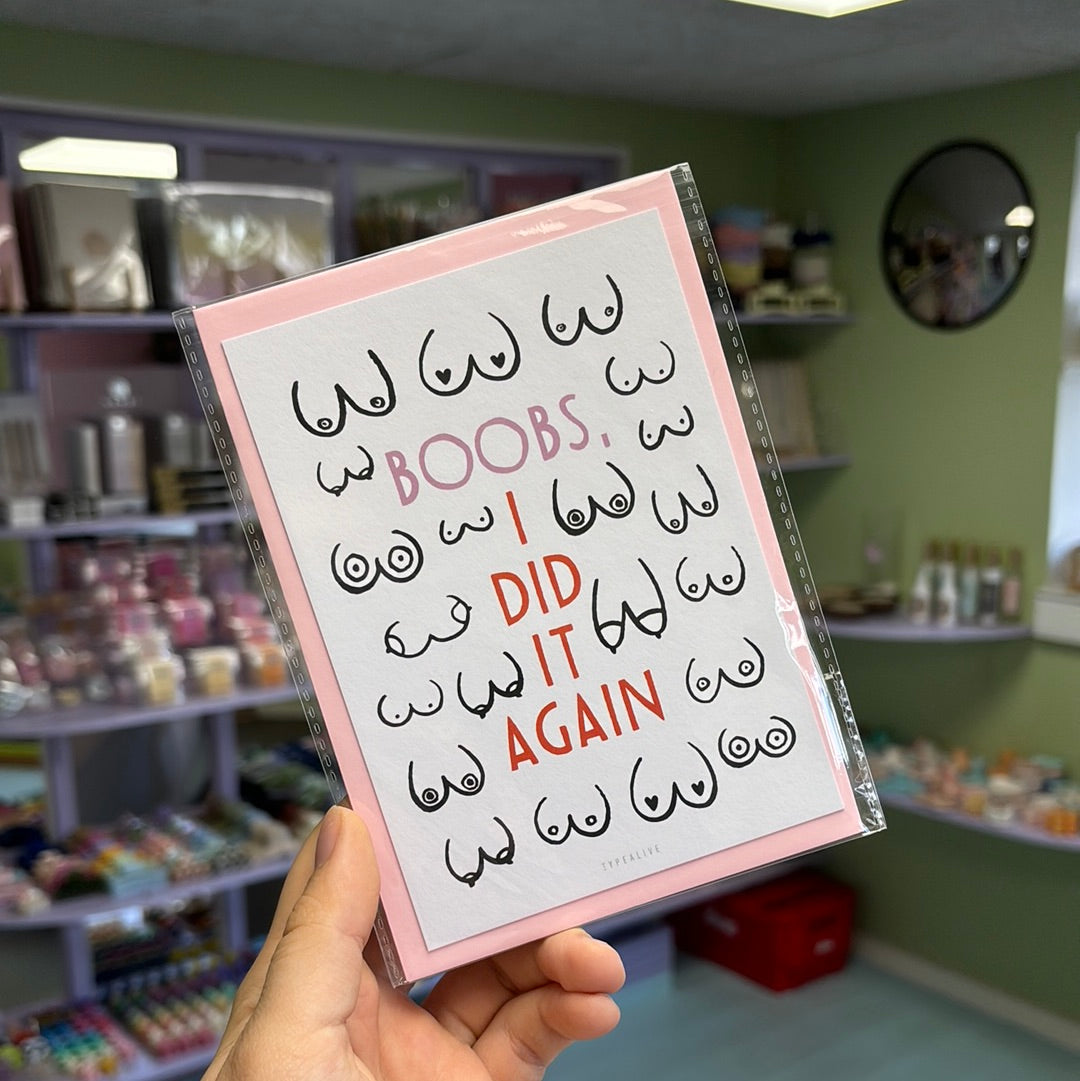 BOOBS,
I
DID
IT
AGAIN
TYPEALIVE